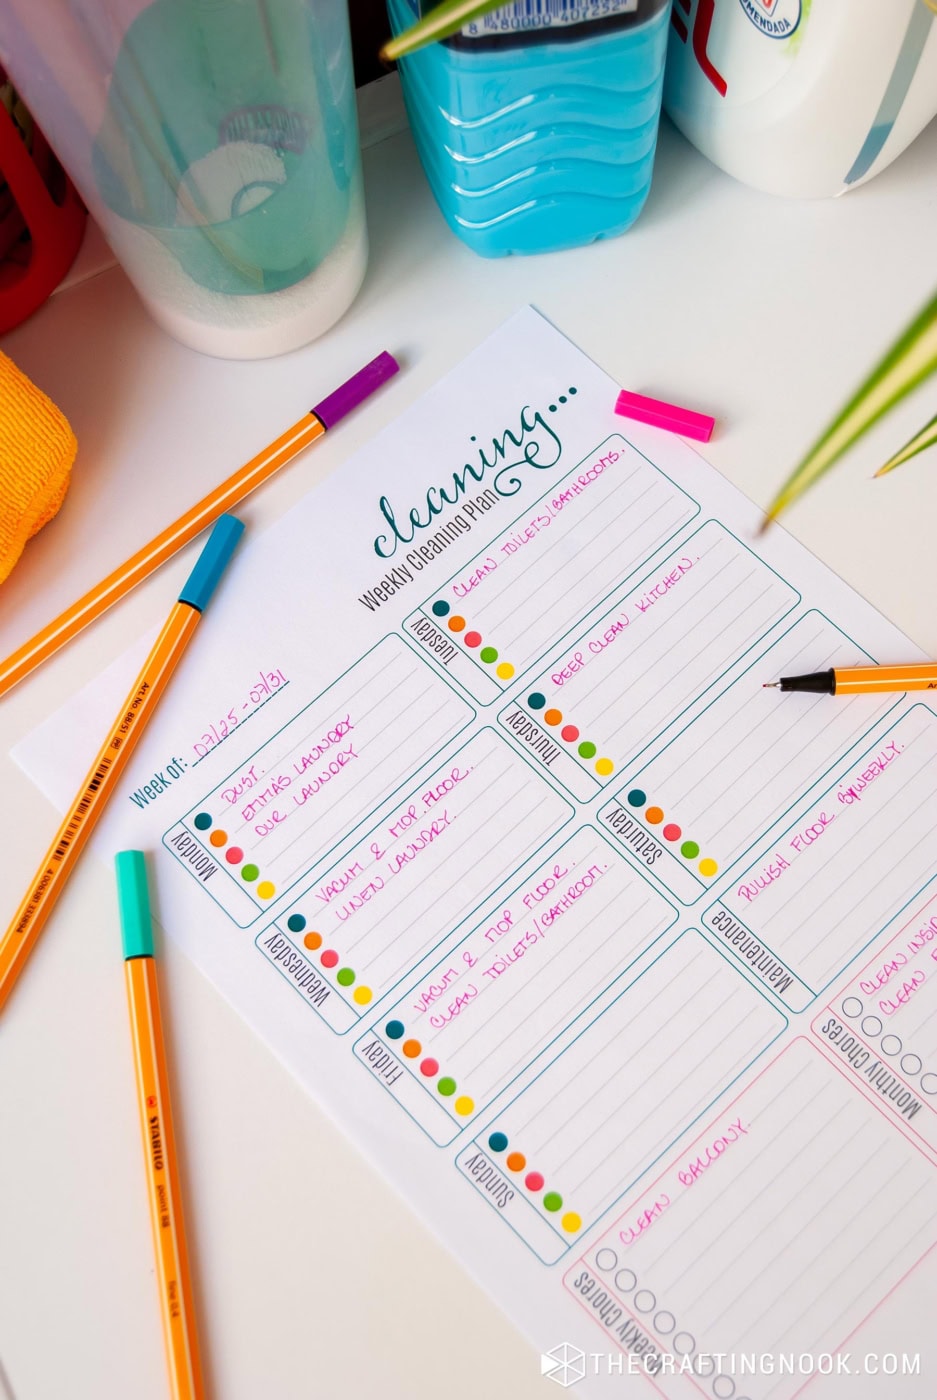 8 480000 407232
MENDADA
cleaning...
Weekly Cleaning Plan
Week of: 07/25 - 07/31
Monday
DUST.
EMMA'S LAUNDRY
OUR LAUNDRY
Tuesday
CLEAN TOILETS/BATHROOMS.
Wednesday
VACUM & MOP FLOOR.
LINEN LAUNDRY.
Thursday
DEEP CLEAN KITCHEN.
Friday
VACUM & MOP FLOOR.
CLEAN TOILETS/BATHROOM.
Saturday
Sunday
Maintenance
PULLISH FLOOR BYWEEKLY.
Weekly Chores
CLEAN BALCONY.
Monthly Chores
CLEAN INSID
CLEAN
Art No. 88/51
STABILO
point 88
fine 0.4
THECRAFTINGNOOK.COM